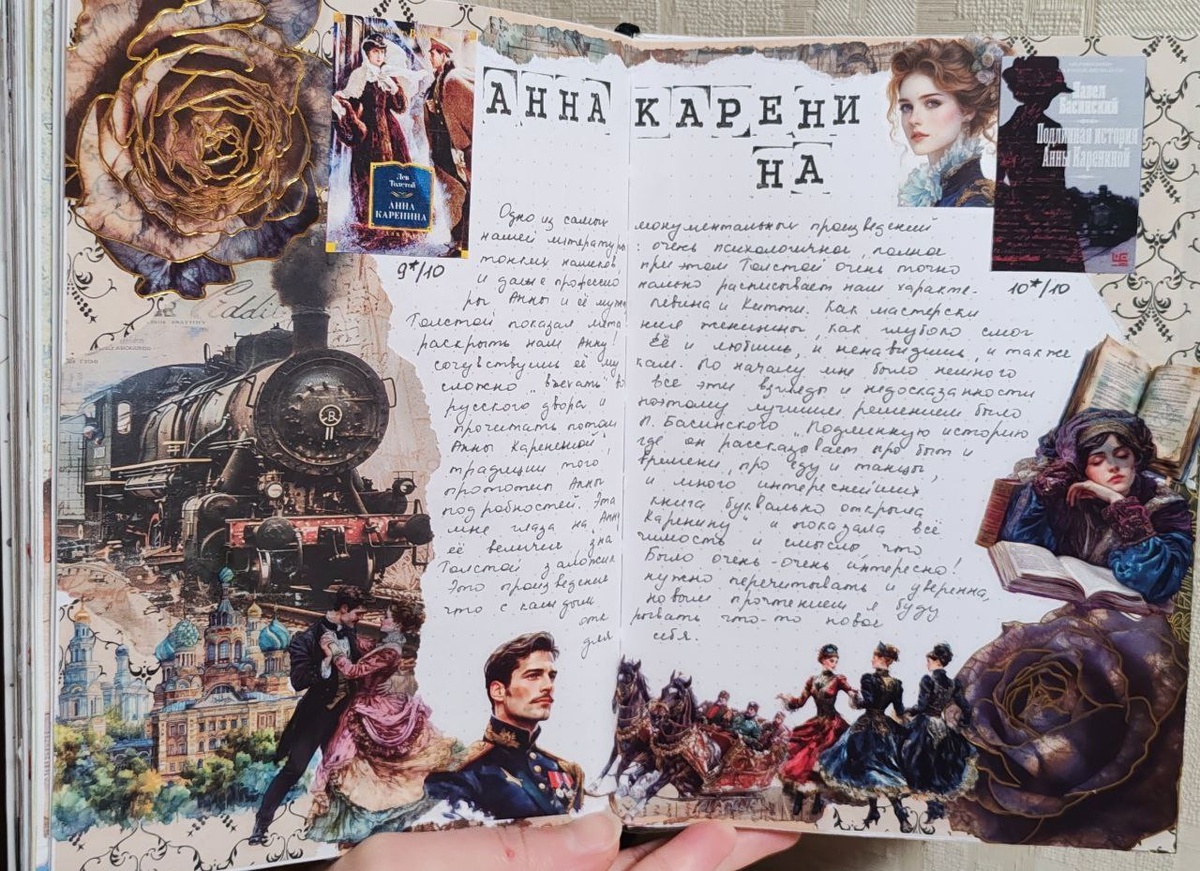 АННА КАРЕНИ
НА
Лев
Толстой
АННА
КАРЕНИНА
9*/10
Павел
Басинский
Подлинная история
Анны Карениной
10*/10
Одно из самых монументальных произведений
нашей литературы: очень психологичное, полное
тонких намеков, при этом Толстой очень точно
и даже профессионально расписывает нам характе-
ры Анны и её мужа, Левина и Китти. Как мастерски
Толстой показал мета ние женщины, как глубоко смог
раскрыть нам Анну! Её и любишь, и ненавидишь, и также
сочувствуешь её мукам. По началу мне было немного
сложно "въехать" во все эти взгляды и недосказанности
русского двора и поэтому лучшим решением было
прочитать потом П. Басинского "Подлинную историю
Анны Карениной", где он рассказывает про быт и
традиции того времени, про еду и танцы,
прототип Анны и много интереснейших
подробностей. Эта книга буквально открыла
мне глаза на "Анну Каренину" и показала всё
её величие, значимость и смысл, что
Толстой заложил. Было очень-очень интересно!
Это произведение нужно перечитывать и уверенна,
что с каждым новым прочтением я буду
открывать что-то новое
для себя.